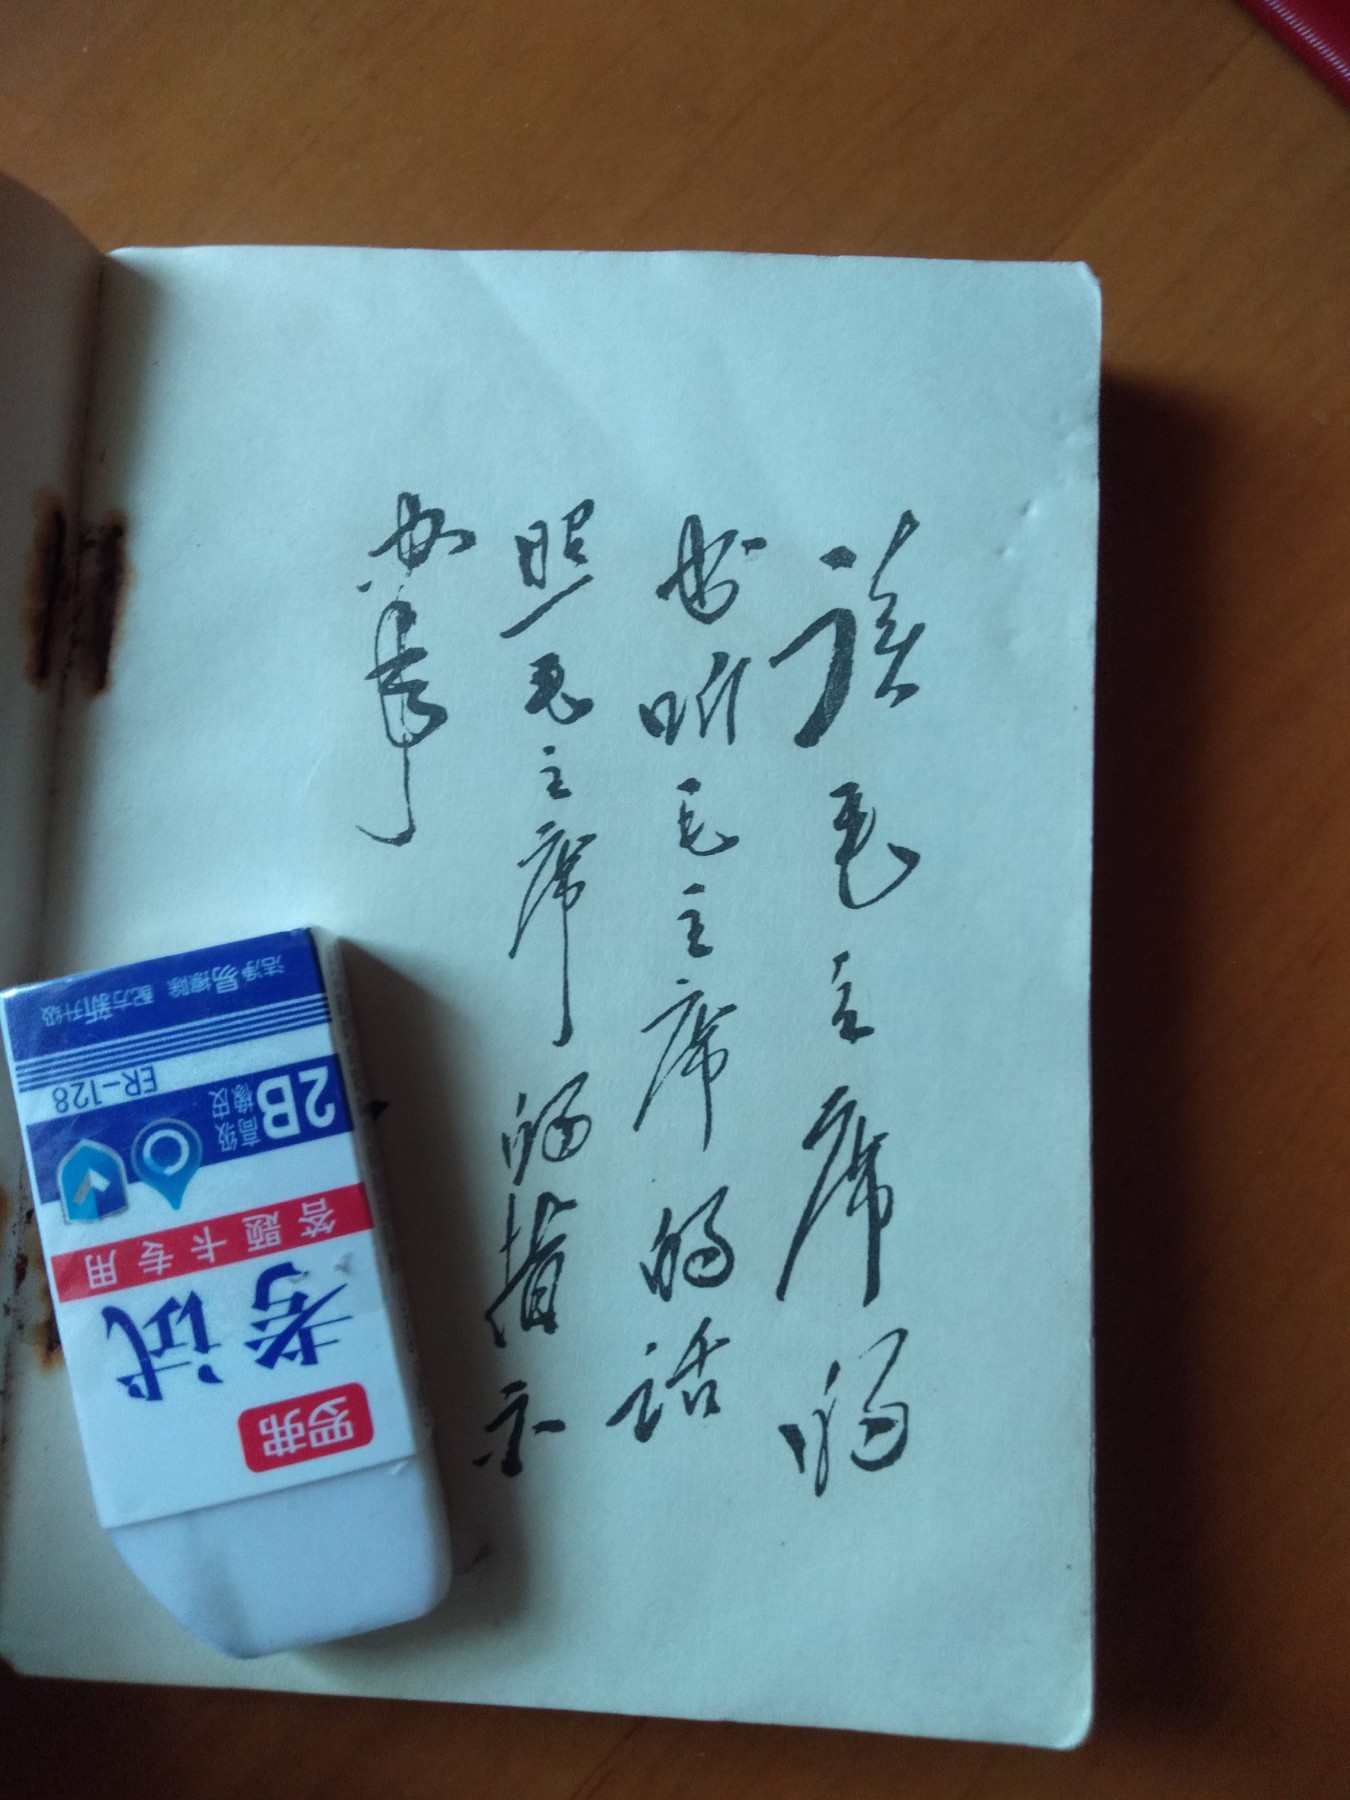 读毛主席的
书听毛主席的话
照毛主席的指示
办事
罗弗
考试
答题卡专用
2B
高级
橡皮
ER-128
洁净易擦除 配方新升级